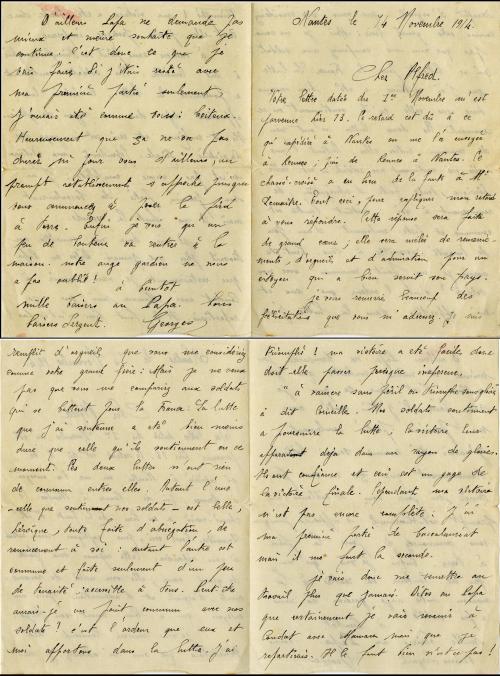 Nantes le 14 Novembre 1914.
Cher Alfred.
Votre lettre datée du 1er Novembre m'est
parvenue hier 13. Ce retard est dû à ce
qu'expédiée à Nantes on me l'a envoyée
à Rennes ; puis de Rennes à Nantes. Ce
chassé-croisé a eu lieu de la faute à Mr
Lemaitre. Tout ceci, pour expliquer mon retard
à vous répondre. Cette réponse sera faite
de grand cœur ; elle sera mêlée de remercie-
ments, d'orgueil et d'admiration pour un
citoyen qui a bien servi son pays.
Je vous remercie beaucoup des
félicitations que vous m'adressez. Je suis
remplit d'orgueil que vous me considériez
comme votre grand frère : Mais je ne veux
pas que vous me compariez aux soldats
qui se battent pour la France. La lutte
que j'ai soutenue a été bien moins
dure que celle qu'ils soutiennent en ce
moment. Ces deux luttes n'ont rien
de commun entres elles. Autant l'une
- celle que soutiennent nos soldats - est belle,
héroïque, toute faite d'abnégation, de
renoncement à soi : autant l'autre est
commune et faite seulement d'un peu
de tenacité accessible à tous. Peut-être
aurais-je un point commun avec nos
soldats ! c'est l'ardeur que eux et
moi apportons dans la lutte. J'ai
triomphé ! ma victoire a été facile donc
doit-elle passer presque inaperçue.
"à vaincre sans péril on triomphe sans gloire"
a dit Corneille. Nos soldats continuent
a poursuivre la lutte, la victoire leur
apparait déjà dans un rayon de gloire.
Ils ont confiance et ceci est un gage de
la victoire finale. Cependant ma victoire
n'est pas encore complète. J'ai
ma première partie de baccalauréat
mais il me faut la seconde.
Je vais donc me remettre au
travail plus que jamais. Dites au Papa
que certainement je vais revenir à
Condat avec Maman mais que je
repartirais. Il le faut bien n'est-ce pas !
D'ailleurs Papa ne demande pas
mieux et même souhaite que je
continue. C'est donc ce que je
vais faire. Si j'étais resté avec
ma première partie seulement
j'aurais été comme vous :
Heureusement que ça ne va pas
durer pour vous d'ailleurs, un
prompt rétablissement s'approche puisque
vous commencez à poser le pied
à terre. Enfin je vois qu'un
peu de bonheur va rentrer à la
maison. notre ange gardien ne nous
a pas oublié !
à bientôt
mille baisers au Papa. bons
baisers Sergent. Georges